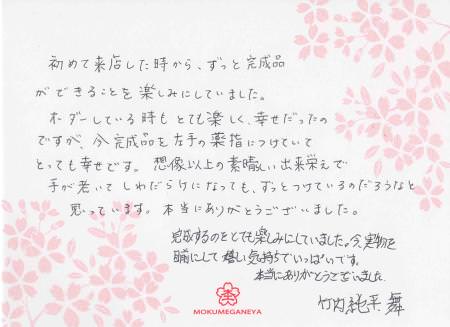 初めて来店した時から、ずっと完成品
ができることを楽しみにしていました。
オーダーしている時もとても楽しく、幸せだったの
ですが、今完成品を左手の薬指につけていて
とっても幸せです。想像以上の素晴しい出来栄えで
手が老いてしわだらけになっても、ずっとつけているのだろうなと
思っています。本当にありがとうございました。
完成するのをとても楽しみにしていました。今、実物を
目前にして嬉しい気持ちでいっぱいです。
本当にありがとうございました
竹内 純平 舞
MOKUMEGANEYA